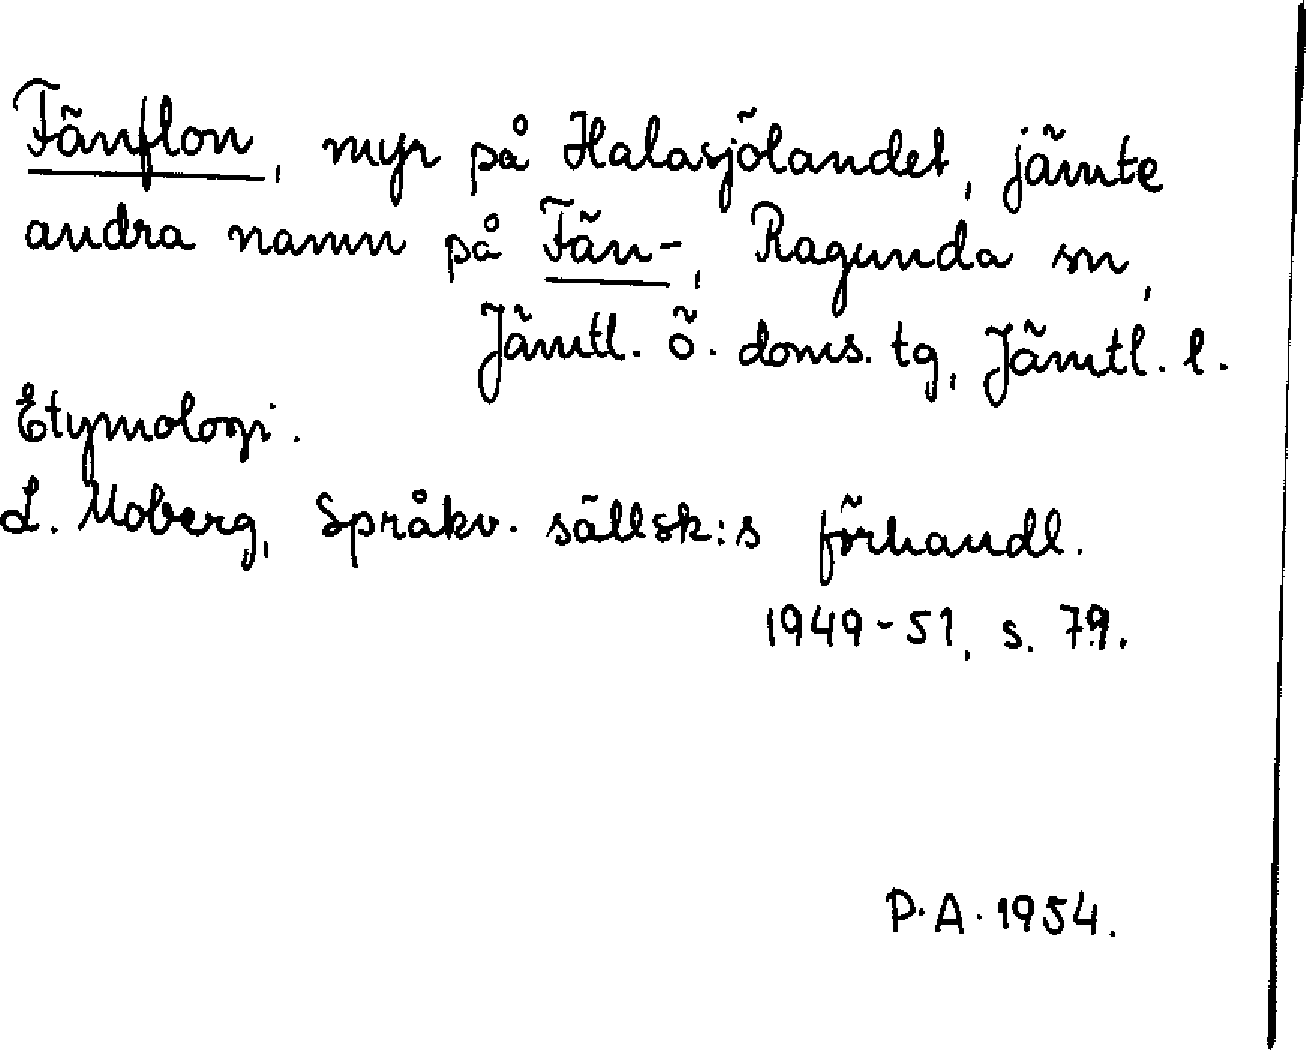 Fänflon, myr på Halasjölandet, jämte
andra namn på Fän-, Ragunda sn,
Jämtl. ö. doms. tg, Jämtl. l.
Etymologi.
L. Moberg, Språkv. sällsk:s förhandl.
1949-51, s. 79.
P.A. 1954.